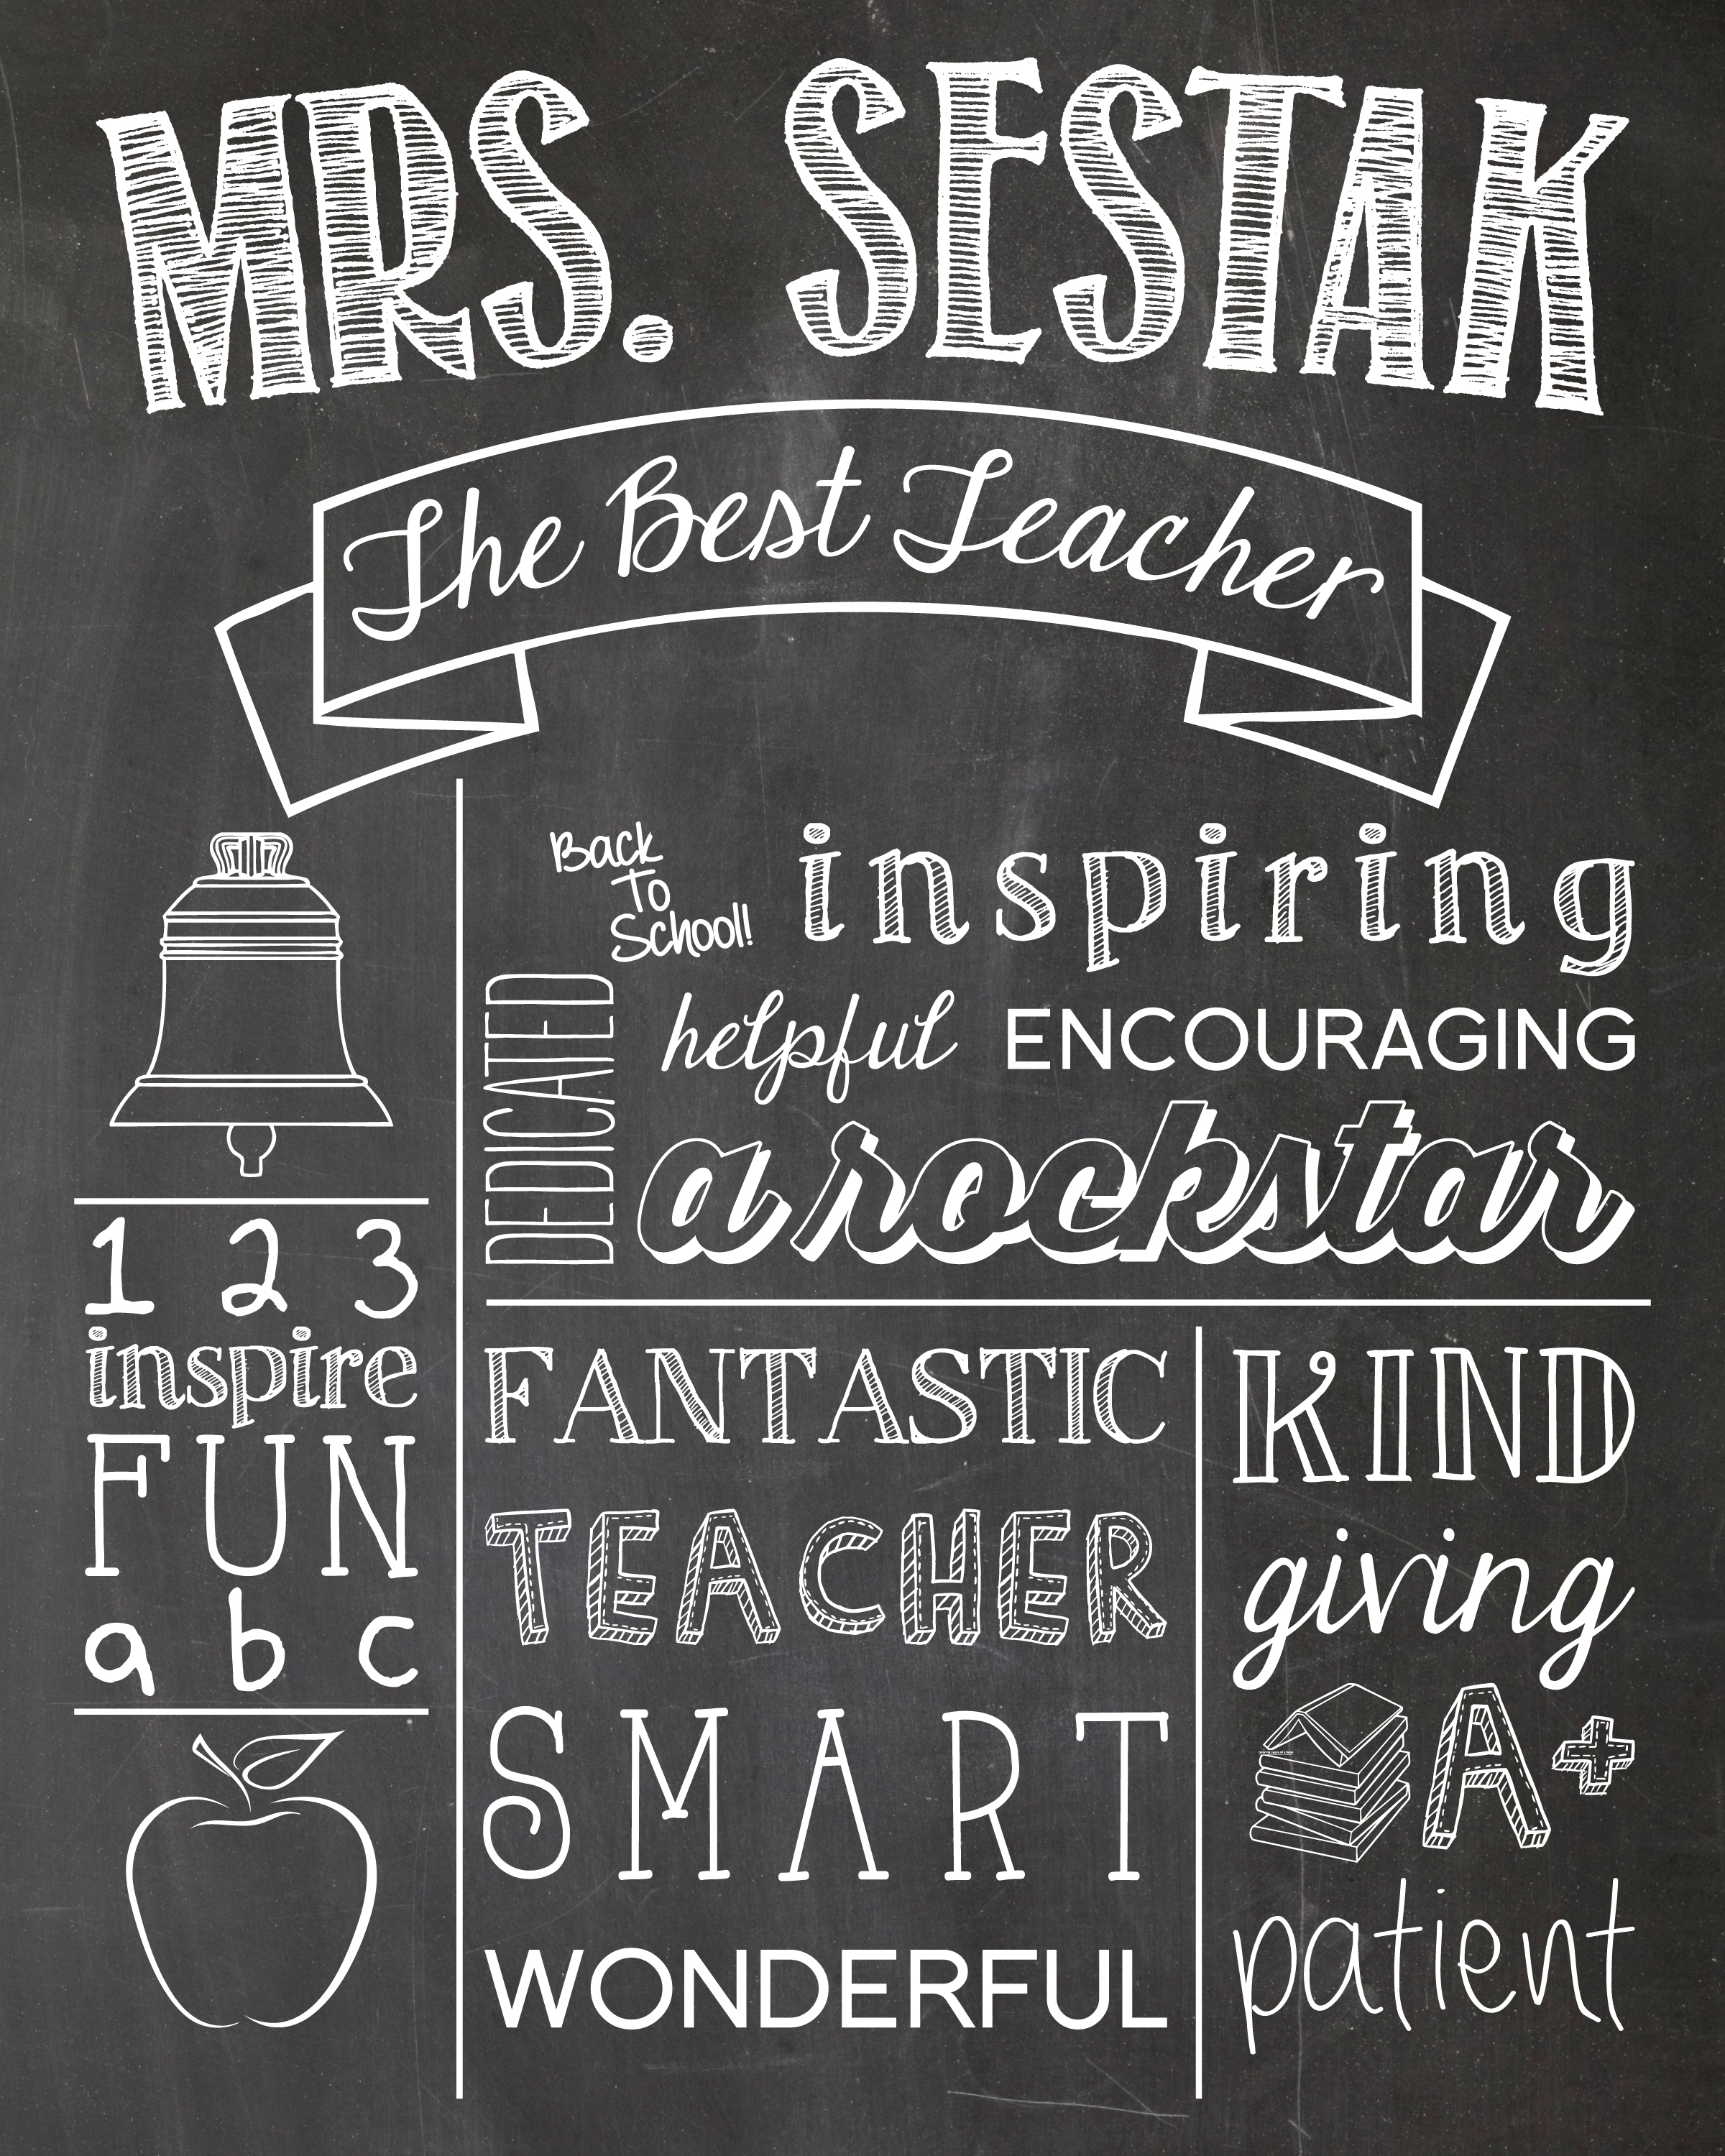 MRS. SESTAK
The Best Teacher
Back
To
School!
inspiring
DEDICATED
helpful ENCOURAGING
a rockstar
1 2 3
inspire
FUN
a b c
FANTASTIC
TEACHER
SMART
WONDERFUL
KIND
giving
A+
patient